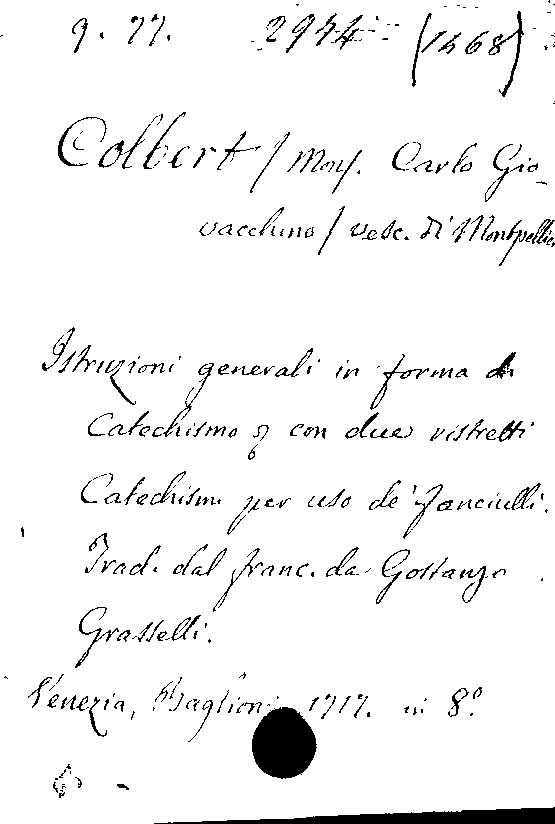 9. 77. 2944 (1468)
Colbert / Mons. Carlo Gio-
vacchino / vesc. di Montpellier
Istruzioni generali in forma di
Catechismo con due ristretti
Catechismi per uso de' fanciulli.
Trad. dal franc. da Gostanzo
Grasselli.
Venezia, Baglioni 1717. in 8.º